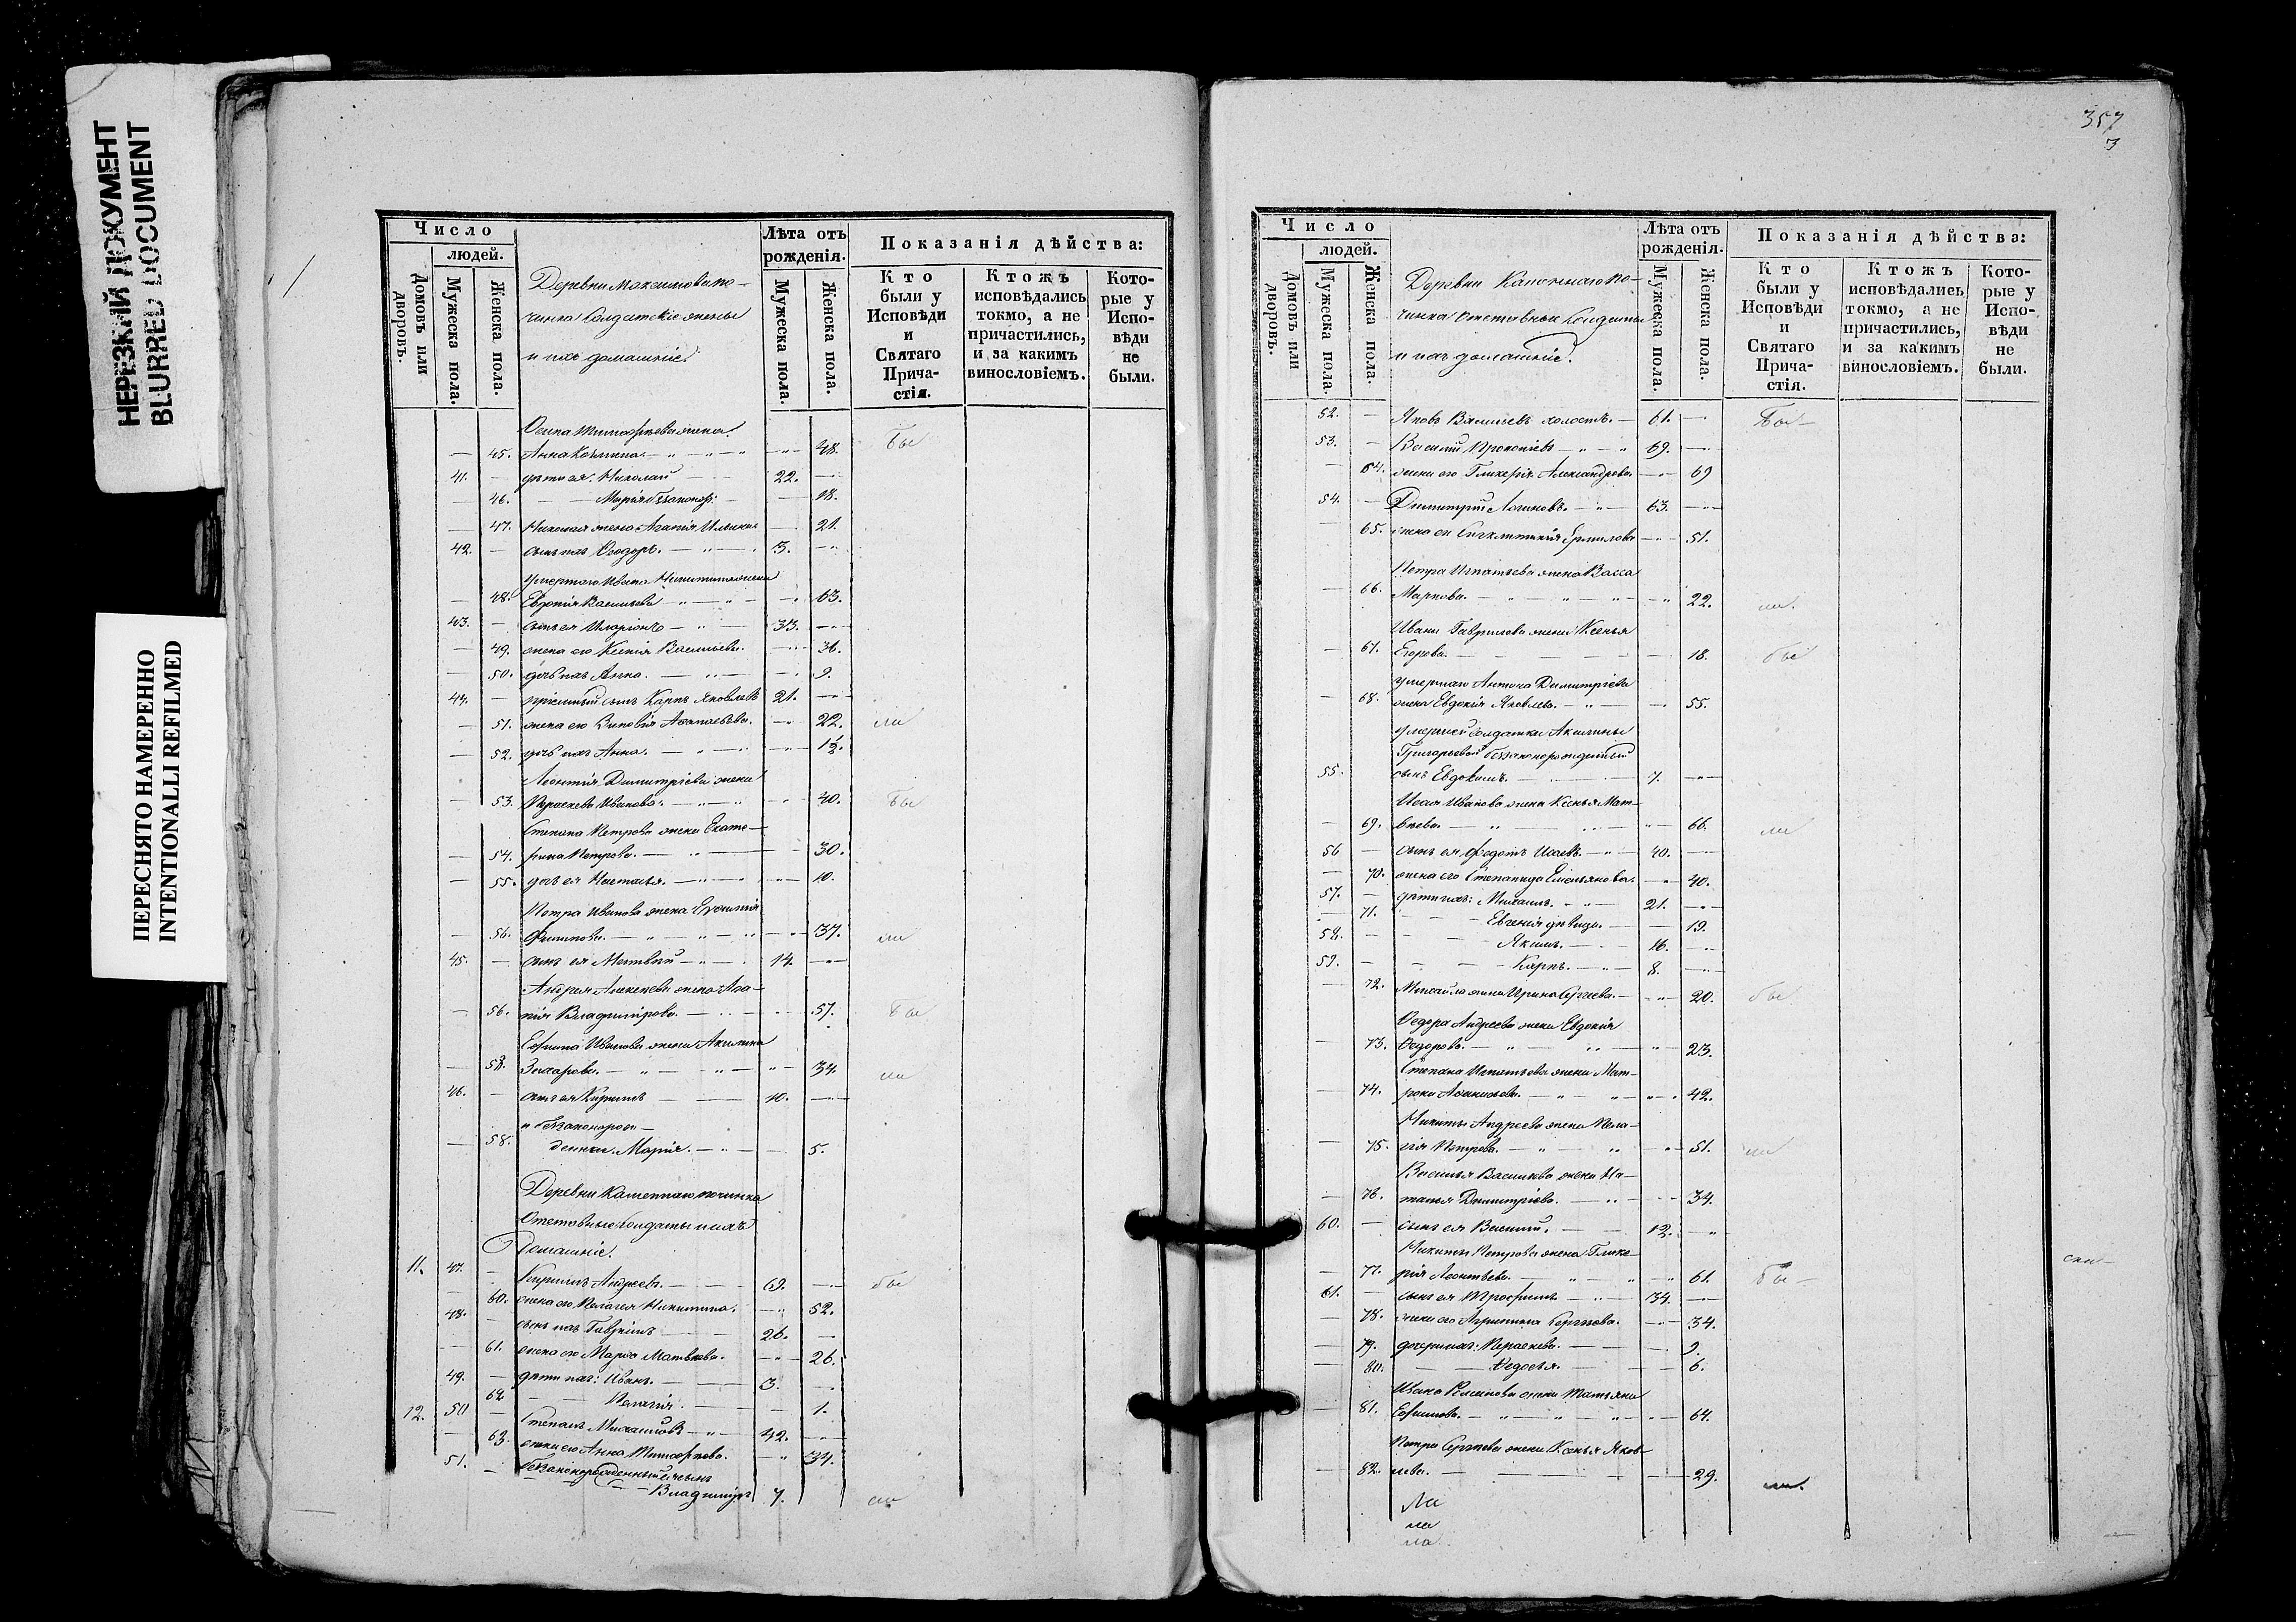 НЕРЕЗКИЙ ДОКУМЕНТ
BLURRED DOCUMENT
ПЕРЕСНЯТО НАМЕРЕННО
INTENTIONALLI REFILMED
Число
людей.
Домовъ или дворовъ.
Мужеска пола.
Женска пола.
Деревни Максимова по-
чинка Солдатскіе жены
и ихъ домашніе
Лѣта отъ рожденія.
Мужеска пола.
Женска пола.
Показанія дѣйства:
Кто были у Исповѣди и Святаго Прича-стія.
Ктожъ исповѣдались токмо, а не причастились, и за какимъ винословіемъ.
Кото-рые у Испо-вѣди не были.
Осипа Тимофѣева жена
45. Анна 48. Бы
41. дѣти ея: Николай 22.
46. Марія 18.
47. Николая жена Агапія 21.
42. сынъ ихъ Ѳеодоръ. 3.
умершаго Ивана Никитина жена
48. Евдокія Васильева 63.
43. сынъ ея Иларіонъ 33.
49. жена его Ксенія Васильева. 36.
50. дочь ихъ Анна. 9.
44. пріемный сынъ Карпъ Яковлевъ 21.
51. жена его Зиновія 22. ли
52. дочь ихъ Анна. 1½.
Леонтія Димитріева жена
53. Параскева Иванова. 40. Бы
Степана Петрова жена Екате-
54. рина Петрова. 30.
55. дочь ея Наталья. 10.
Петра Иванова жена
56. Филипова. 37. ли
45. сынъ ея Матвѣй 14.
Андрея Алексѣева жена Ага-
56. пія Владимірова. 57. Бы
Ефима Иванова жена Акилина
58. Захарова. 34. ли
46. сынъ ея Кирилъ 10.
и беззаконорож-
58. денная Марія. 5.
Деревни Каменнаго починка
Отставные Солдаты и ихъ
Домашніе.
11. 47. Кирилъ Андреевъ. 69. бы
60. жена его Пелагея Никитина. 52.
48. сынъ ихъ Гавріилъ 26.
61. жена его Марѳа Матвѣева. 26.
49. дѣти ихъ: Иванъ. 3.
62 Пелагія. 1.
12. 50 Степанъ Михаиловъ 42.
63. жена его Анна Тимофѣева. 34.
51. беззаконорожденный сынъ
Владиміръ 7. ли
357
Число
людей.
Домовъ или дворовъ.
Мужеска пола.
Женска пола.
Деревни Каменнаго по-
чинка Отставные Солдаты
и ихъ домашніе.
Лѣта отъ рожденія.
Мужеска пола.
Женска пола.
Показанія дѣйства:
Кто были у Исповѣди и Святаго Прича-стія.
Ктожъ исповѣдались токмо, а не причастились, и за какимъ винословіемъ.
Кото-рые у Испо-вѣди не были.
52. Яковъ Васильевъ холостъ. 61. Бы-
53. Василій Прокопіевъ 69.
64. жена его Гликерія Александрова. 69
54. Димитрій Логиновъ. 63.
65. жена его Синклитикія Ермилова 51.
Петра Игнатьева жена Васса
66. Маркова. 22. ли.
Ивана Гаврилова жена Ксенья
67. Егорова. 18. бы
умершаго Антона Димитріева
68. жена Евдокія Яковлева. 55.
умершей солдатки Акилины
Григорьевой беззаконорожденный
55. сынъ Евдокимъ. 7.
Исаія Иванова жена Ксенья Мат-
69. вѣева. 66. ли
56 сынъ ея Федотъ Исаевъ. 40.
70. жена его Степанида Емельянова. 40.
57. дѣти ихъ: Михаилъ. 21.
71. Евгенія дѣвица. 19.
58. Якимъ. 16.
59. Карпъ. 8.
72. Михаила жена Ирина Сергѣева. 20. бы
Ѳедора Андреева жена Евдокія
73. Ѳедорова. 23.
Степана Игнатьева жена Мат-
74. рона 42.
Никиты Андреева жена Пела-
75. гія Петрова. 51. ли
Василья Васильева жена На-
76. талья Димитріева. 34.
60. сынъ ея Василій. 12.
Никиты Петрова жена Глике-
77. рія Леонтьева. 61. бы-
61. сынъ ея Трофимъ 34.
78. жена его Агрипина Сергѣева. 34.
79. дочери ихъ: Параскева. 9.
80. Ѳедосья. 6.
Ивана жена Татьяна
81. Ефимова. 64.
Петра Сергѣева жена Ксенья Яков-
82. лева. 29. ли.
Ли
ли